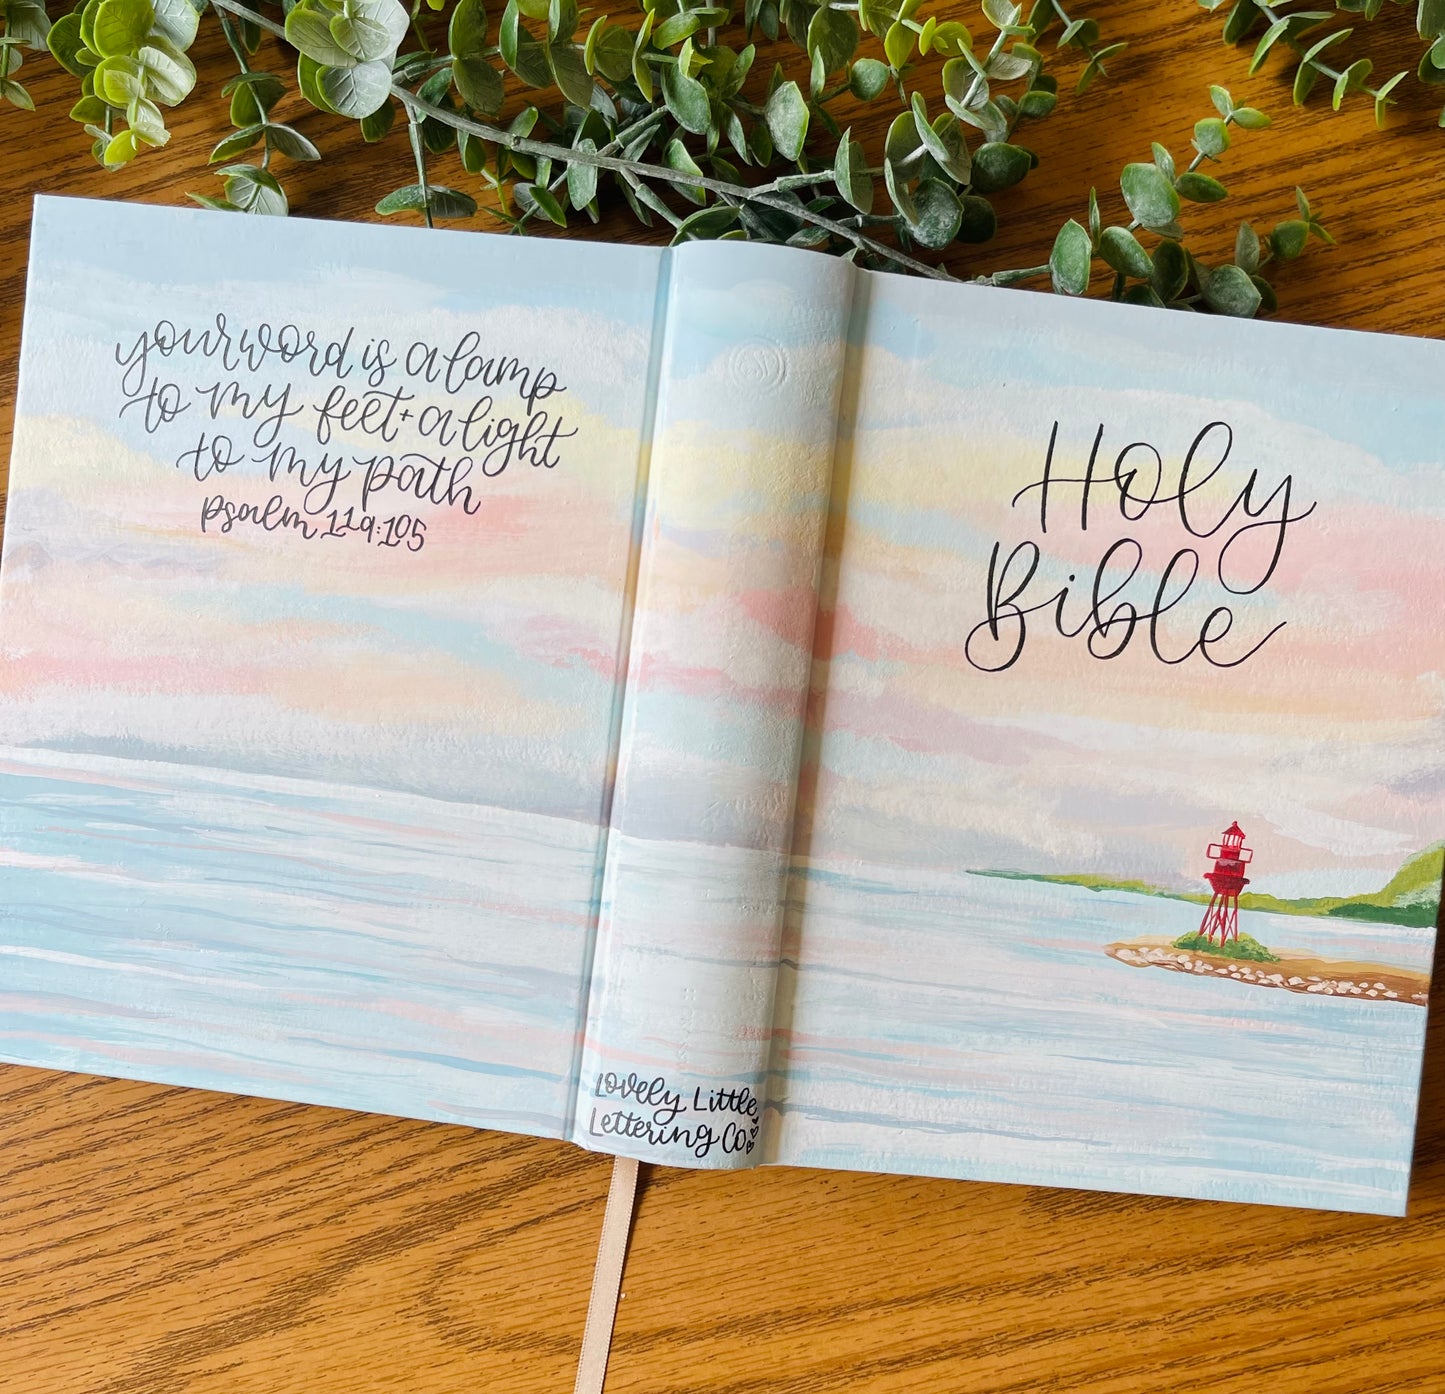 your word is a lamp
to my feet + a light
to my path
psalm 119:105
Holy
Bible
Lovely Little
Lettering Co.